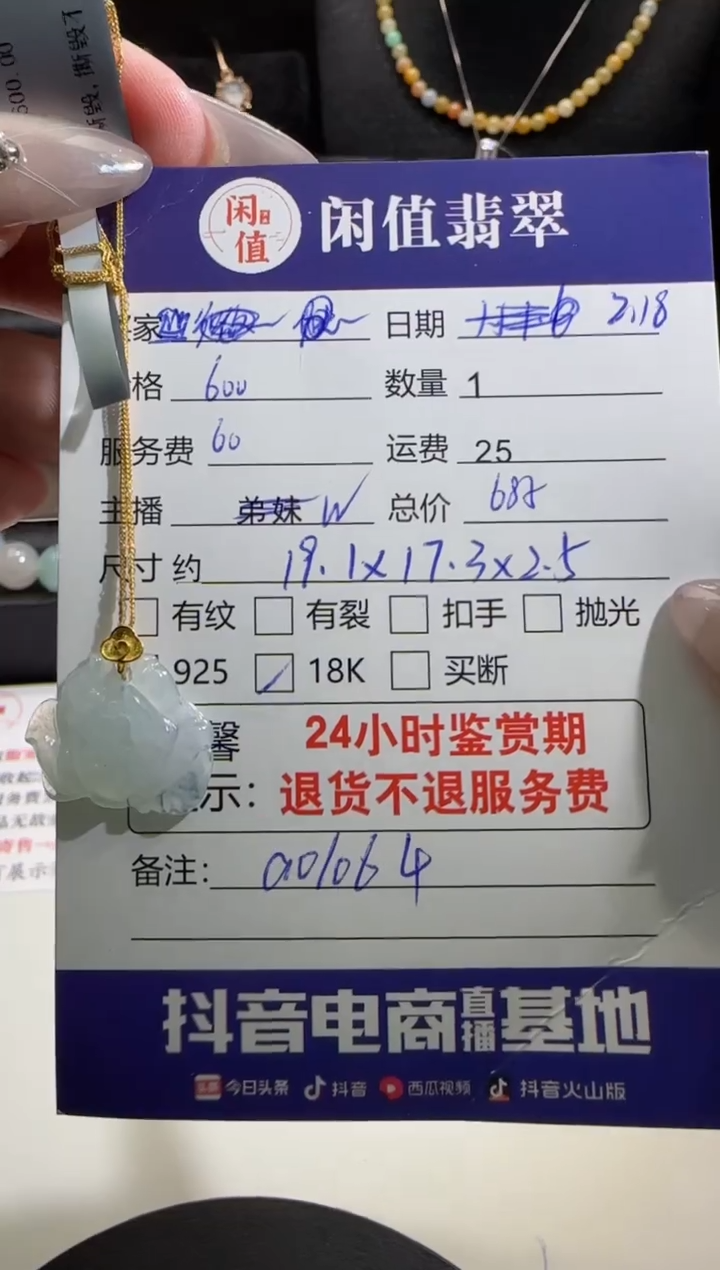 600.00
斩毁,撕毁不
闲值
闲值翡翠
家 日期 2.18
格 600 数量 1
服务费 60 运费 25
主播 弟妹 W 总价 685
尺寸约 19.1x17.3x2.5
有纹 有裂 扣手 抛光
925 18K 买断
馨 24小时鉴赏期
示：退货不退服务费
备注: a01064
抖音电商直播基地
今日头条 抖音 西瓜视频 抖音火山版